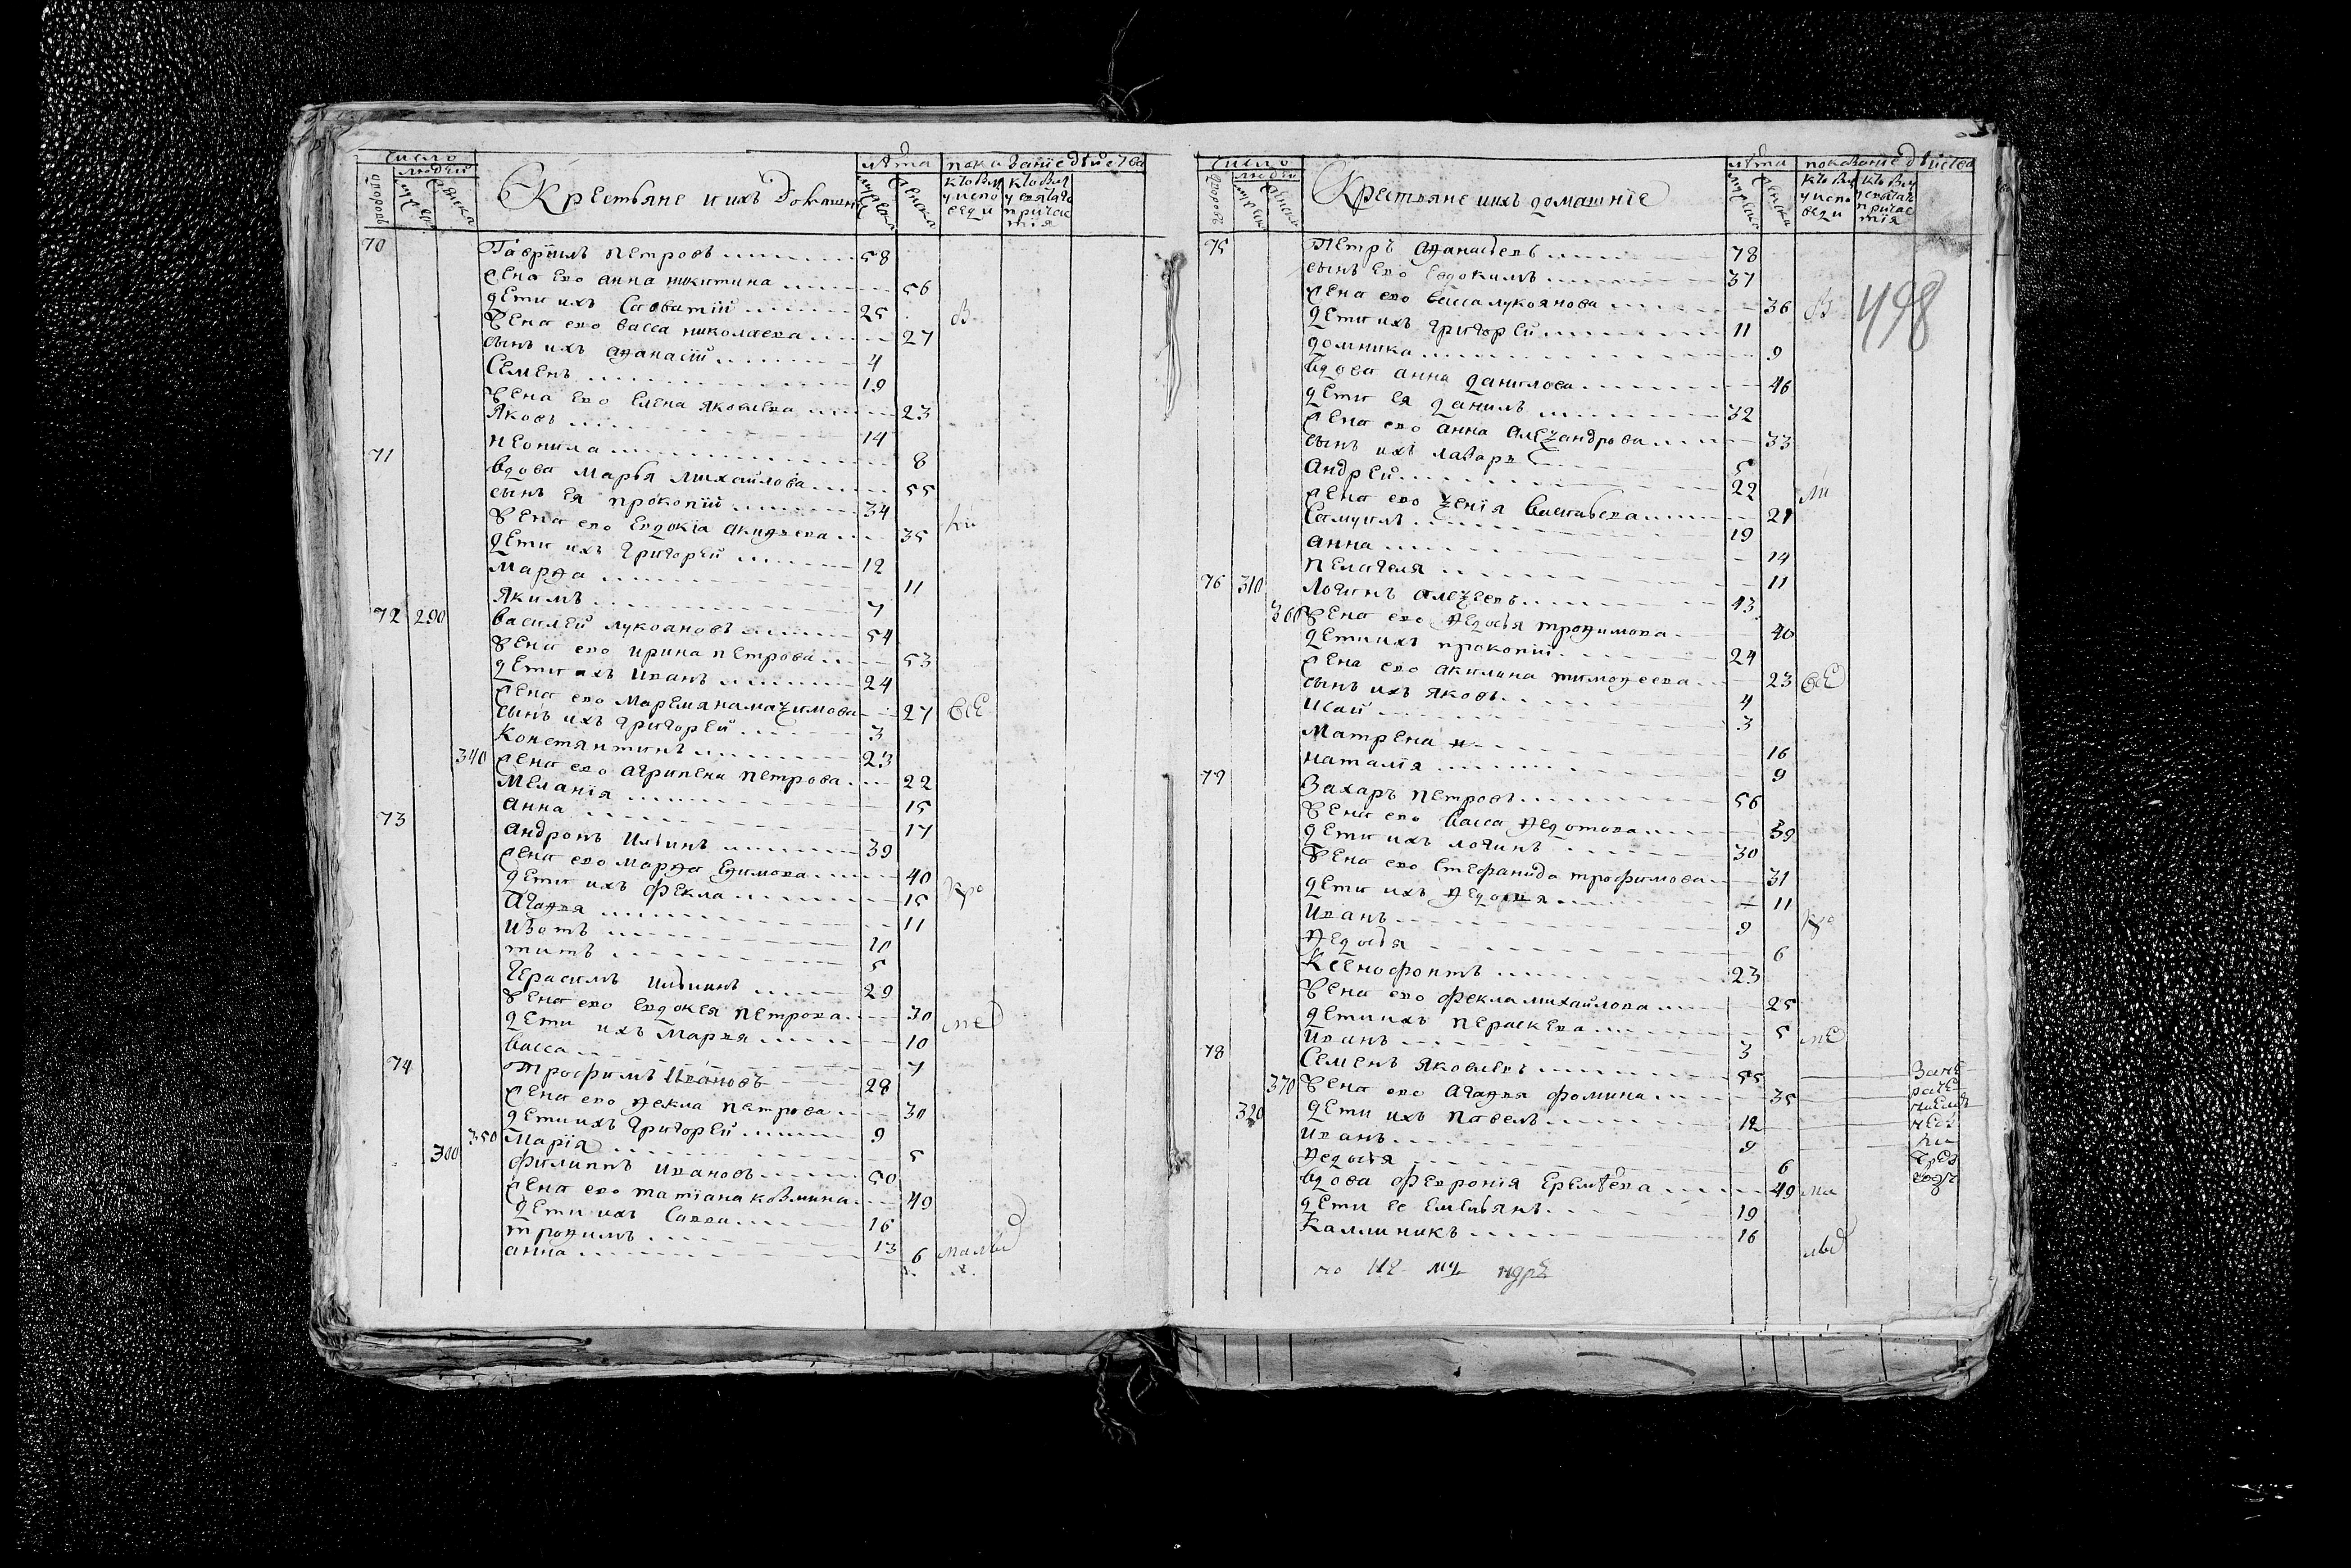 число лѣта показанїе дѣйства
людей
дворовъ мужеска женска Крестьяне и ихъ домашнїе мужеска женска кто был у исповеди кто был у святаго причастїя
70 Гаврїилъ Петровъ 58
жена его Анна Никитина 56
дети ихъ Саватїй 25
жена его Васса Николаева 27
сынъ ихъ Афанасїй 4
Семенъ 19
жена его Елена Яковлева 23
Яковъ 14
Неонила 8
71 вдова Марья Михайлова 55
сынъ ея Прокопїй 34
жена его Евдокїа Акинфеева 35
дети ихъ Григорей 12
Марфа 11
Якимъ 7
72 290 Василей Лукоановъ 54
жена его Ирина Петрова 53
дети ихъ Иванъ 24
жена его Маремяна Маѯимова 27 все
сынъ ихъ Григорей 3
Констянтинъ 23
340 жена его Агрипена Петрова 22
Меланїя 15
Анна 17
73 Андронъ Ильинъ 39
жена его Марфа Ефимова 40
дети ихъ Фекла 15 кро
Агафья 11
Изотъ 10
Титъ 5
Герасимъ Ильинъ 29
жена его Евдокея Петрова 30 ме
дети ихъ Марья 10
Васса 7
74 Трофимъ Ивановъ 28
жена его Фекла Петрова 30
дети ихъ Григорей 9
350 Марїя 5
300 Филиппъ Ивановъ 50
жена его Татїана Козмина 49
дети ихъ Савва 16
Трофимъ 13
Анна 6
число лѣта показанїе дѣйства
людей
дворовъ мужеска женска Крестьяне и ихъ домашнїе мужеска женска кто был у исповеди кто был у святаго причастїя
75 Петръ Афанасьевъ 78
сынъ его Евдокимъ 37
498
жена его Васса Лукоянова 36 в
дети ихъ Григорей 11
Домника 9
вдова Анна Данилова 46
дети ея Данилъ 32
жена его Анна Алеѯандрова 33
сынъ ихъ Лазарь 5
Андрей 22 ли
жена его Ѯенїя Васильева 21
Самуилъ 19
Анна 14
Пелагея 11
76 310 Логинъ Алеѯеевъ 43
360 жена его Федосья Трофимова 40
дети ихъ Прокопїй 24
жена его Акилина Тимофеева 23 все
сынъ ихъ Яковъ 4
Исай 3
Матрена 16
Наталїя 9
77 Захаръ Петровъ 56
жена его Васса Федотова 39
дети ихъ Логинъ 30
жена его Стефанида Трофимова 31
дети ихъ Федосья 11
Иванъ 9 кро
Федосья 6
Ксенофонтъ 23
жена его Фекла Михайлова 25
дети ихъ Пераскева 5 ме
Иванъ 3
78 Семенъ Яковлевъ 55
370 жена его Агафья Фомина 35
320 дети ихъ Павелъ 12
Иванъ 9
Федосья 6
вдова Феѵронїя Еремѣева 49 ма
дети ее Емельянъ 19
Каллиникъ 16